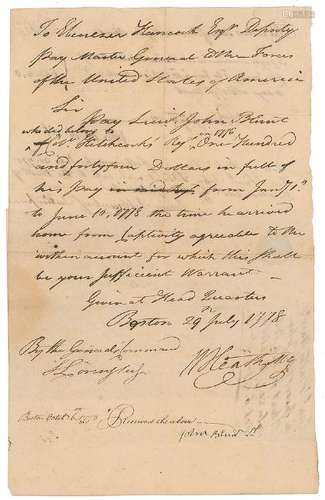 To Ebenezer Hancock Esqr. Deputy
Pay Master General to the Forces
of the United States of America
Sir
Pay Lieut. John Blunt
who did belong to in 1776
Hitchcocks Regt. One Hundred
and forty four Dollars in full of
his Pay from Jany. 1st
to June 10, 1778 the time he arrived
home from Captivity agreeable to the
within account for which this, shall
be your sufficient Warrant
Given at Head Quarters
Boston 29 July 1778
By the General's Command W Heath MG
J Lovering
Boston Received the above
John Blunt Lt